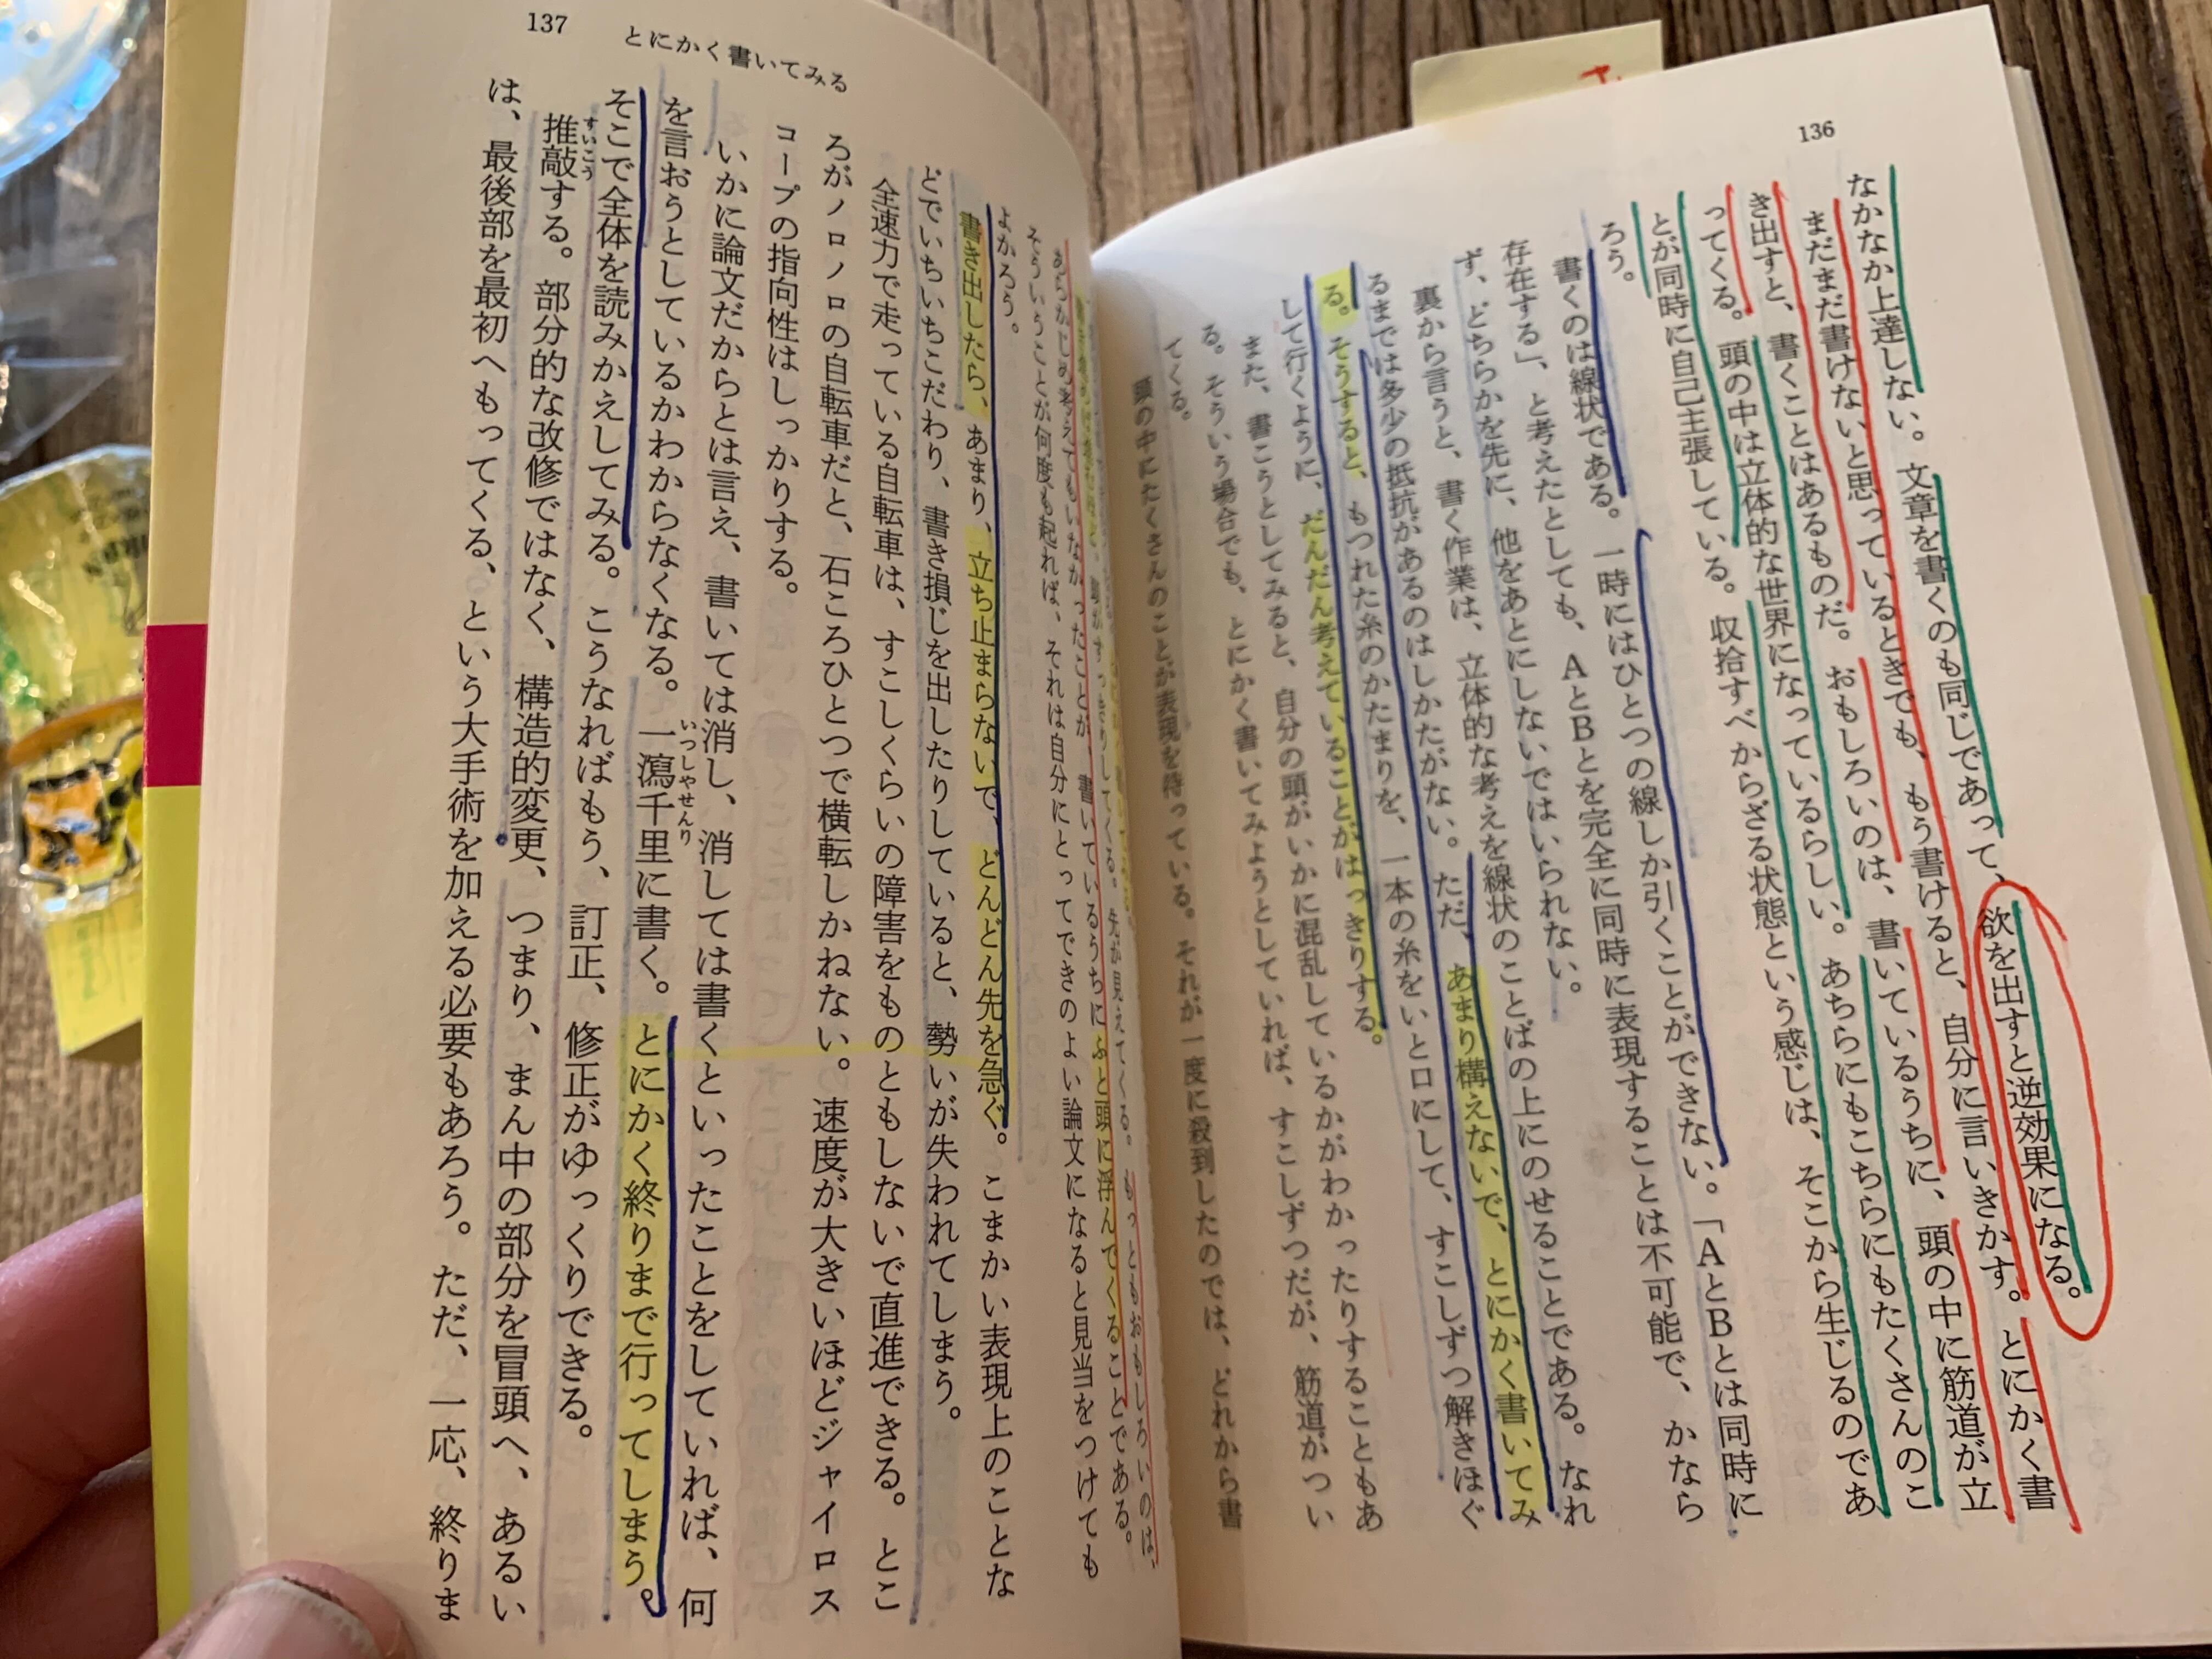 136
なかなか上達しない。文章を書くのも同じであって、欲を出すと逆効果になる。
まだまだ書けないと思っているときでも、もう書けると、自分に言いきかす。とにかく書
き出すと、書くことはあるものだ。おもしろいのは、書いているうちに、頭の中に筋道が立
ってくる。頭の中は立体的な世界になっているらしい。あちらにもこちらにもたくさんのこ
とが同時に自己主張している。収拾すべからざる状態という感じは、そこから生じるのであ
ろう。
書くのは線状である。一時にはひとつの線しか引くことができない。「AとBとは同時に
存在する」、と考えたとしても、AとBとを完全に同時に表現することは不可能で、かなら
ず、どちらかを先に、他をあとにしないではいられない。
裏から言うと、書く作業は、立体的な考えを線状のことばの上にのせることである。なれ
るまでは多少の抵抗があるのはしかたがない。ただ、あまり構えないで、とにかく書いてみ
る。そうすると、もつれた糸のかたまりを、一本の糸をいと口にして、すこしずつ解きほぐ
して行くように、だんだん考えていることがはっきりする。
また、書こうとしてみると、自分の頭がいかに混乱しているかがわかったりすることもあ
る。そういう場合でも、とにかく書いてみようとしていれば、すこしずつだが、筋道がつい
てくる。
頭の中にたくさんのことが表現を待っている。それが一度に殺到したのでは、どれから書
137 とにかく書いてみる
先が見えてくる。もっともおもしろいのは、
あらかじめ考えてもいなかったことが、書いているうちにふと頭に浮んでくることである。
そういうことが何度も起れば、それは自分にとってできのよい論文になると見当をつけても
よかろう。
書き出したら、あまり、立ち止まらないで、どんどん先を急ぐ。こまかい表現上のことな
どでいちいちこだわり、書き損じを出したりしていると、勢いが失われてしまう。
全速力で走っている自転車は、すこしくらいの障害をものともしないで直進できる。とこ
ろがノロノロの自転車だと、石ころひとつで横転しかねない。速度が大きいほどジャイロス
コープの指向性はしっかりする。
いかに論文だからとは言え、書いては消し、消しては書くといったことをしていれば、何
を言おうとしているかわからなくなる。一瀉千里に書く。とにかく終りまで行ってしまう。
いつしやせんり
そこで全体を読みかえしてみる。こうなればもう、訂正、修正がゆっくりできる。
推敲する。部分的な改修ではなく、構造的変更、つまり、まん中の部分を冒頭へ、あるい
すいこう
は、最後部を最初へもってくる、という大手術を加える必要もあろう。ただ、一応、終りま